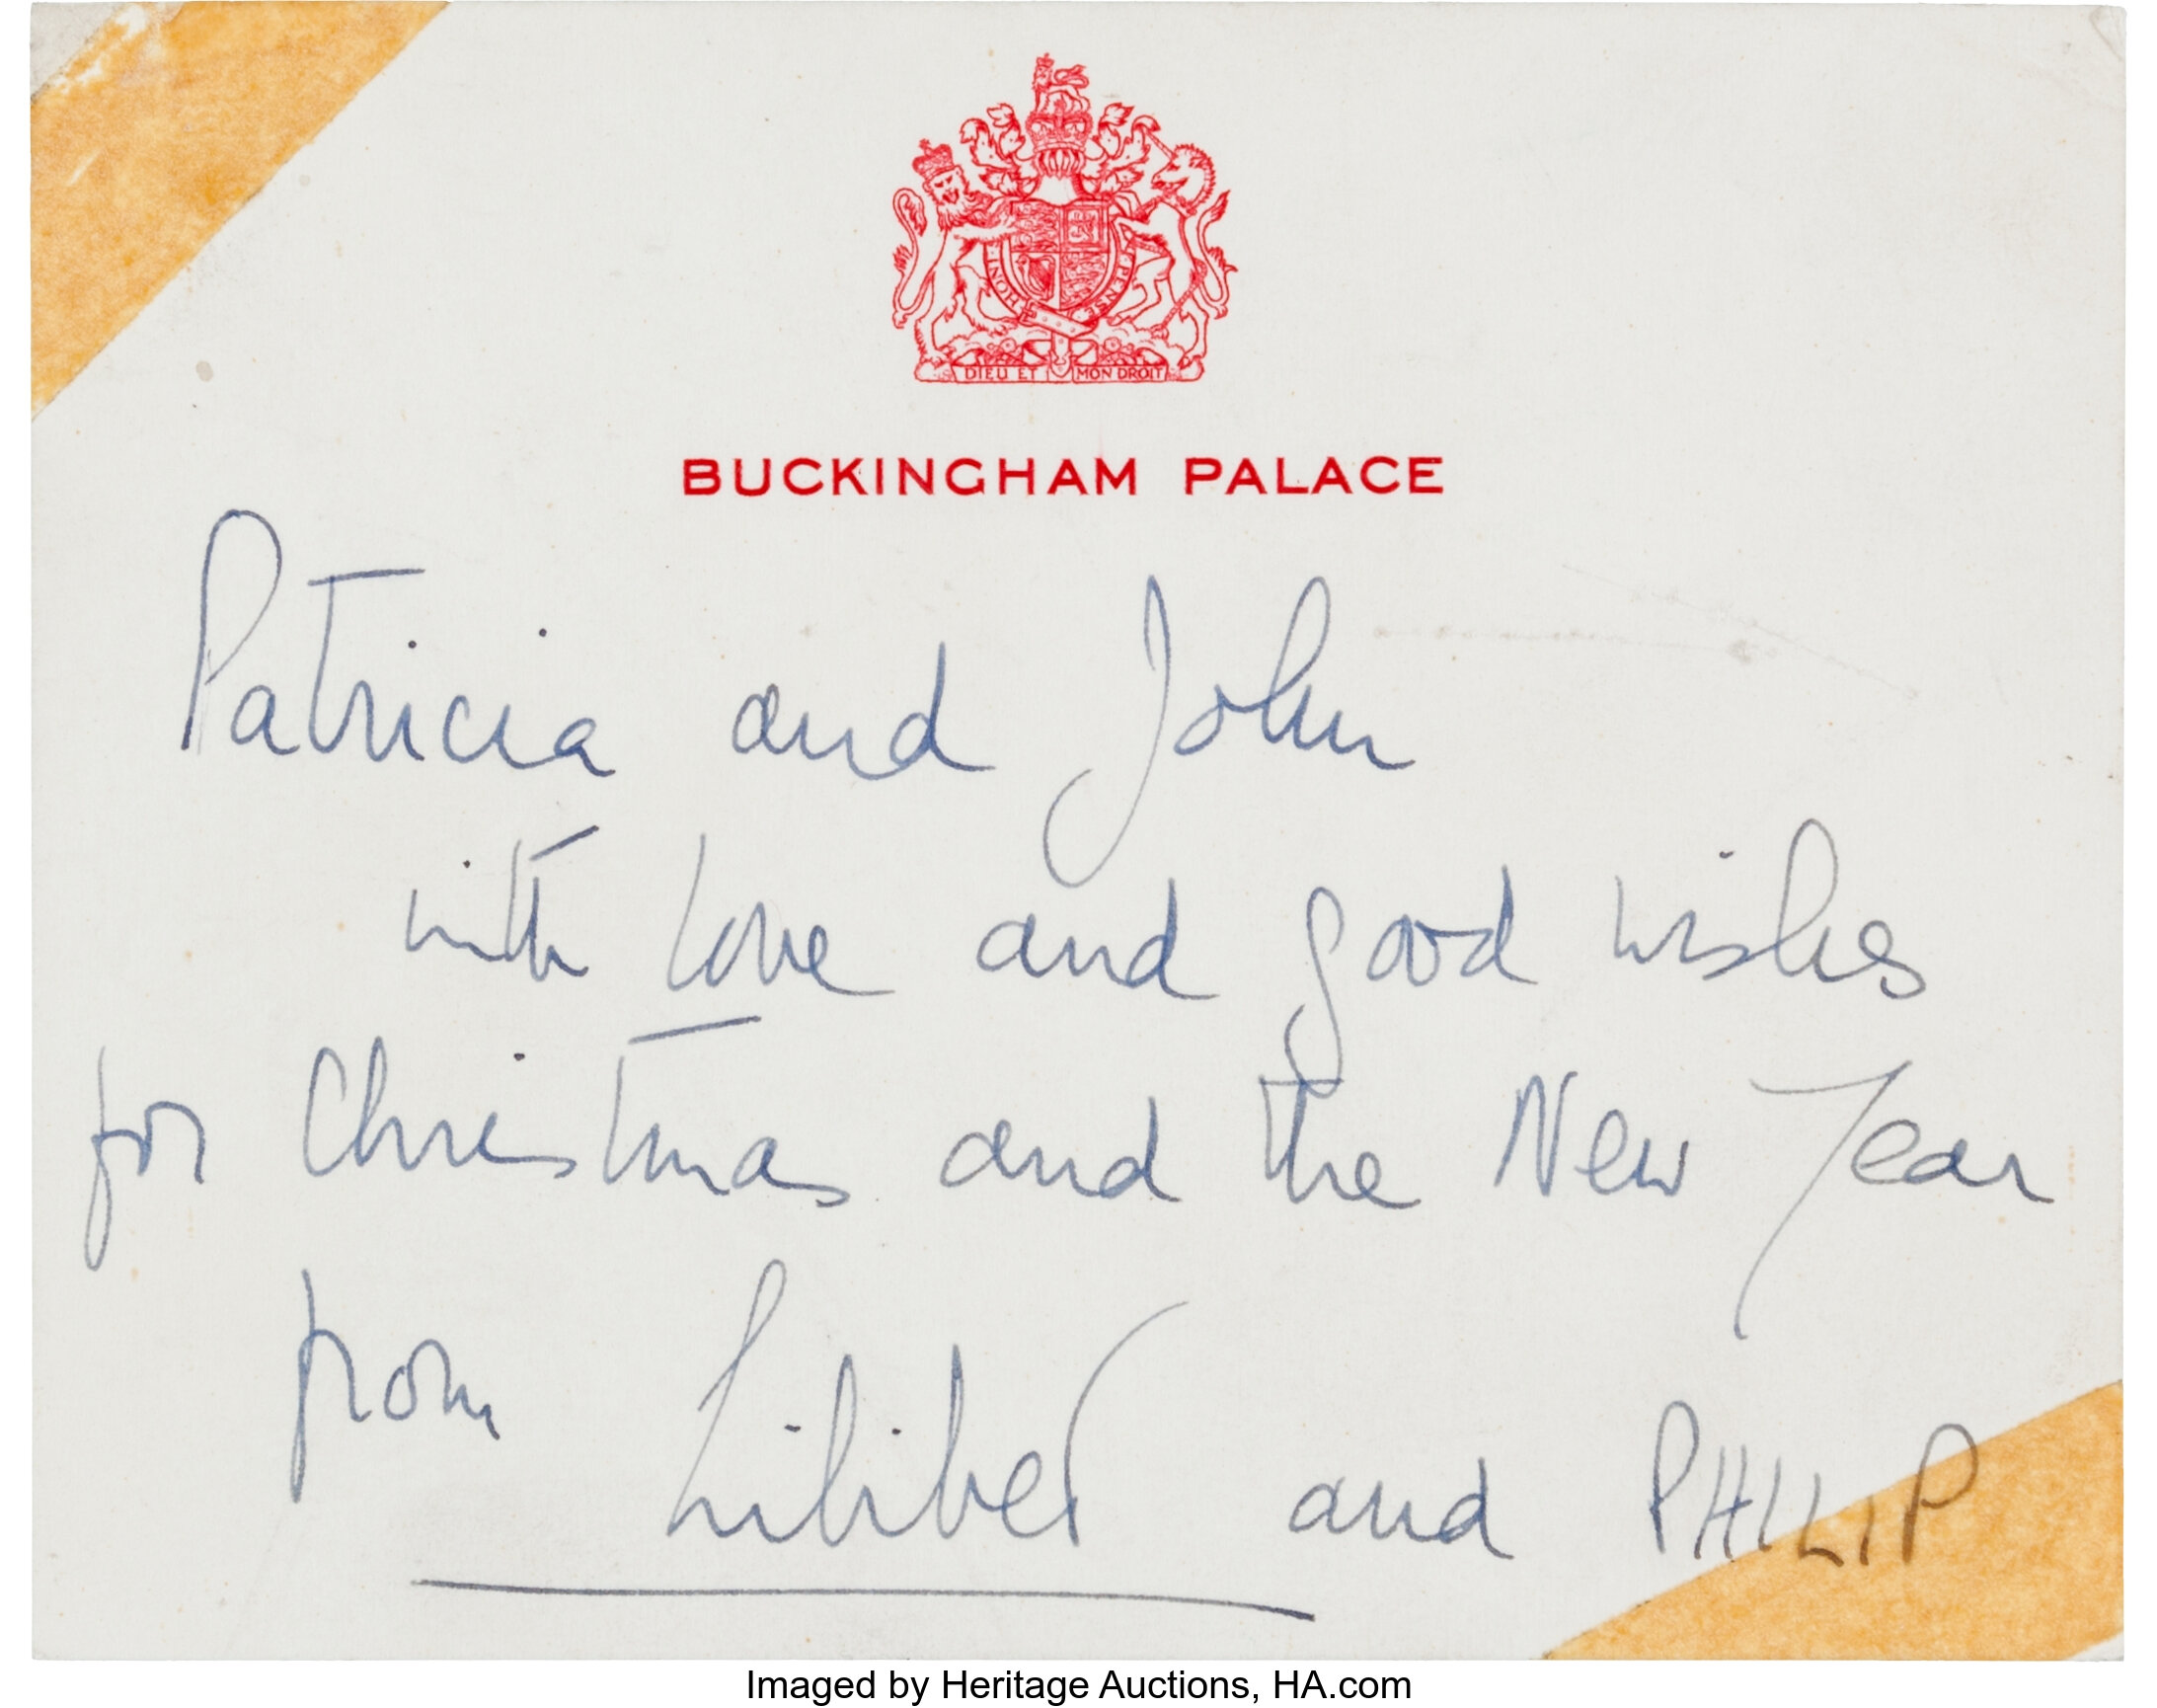 HONI
PENSE
DIEU ET MON DROIT
BUCKINGHAM PALACE
Patricia and John
with love and good wishes
for Christmas and the New Year
from Lilibet and PHILIP
Imaged by Heritage Auctions, HA.com